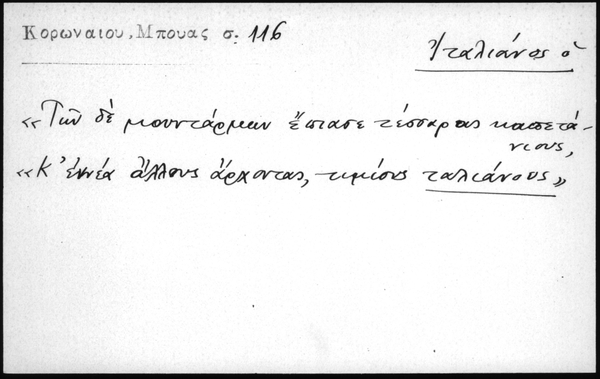 Κορωναιου, Μπουας σ. 116
Ἰταλιάνος ὁ
«Τῶν δὲ μουντάρμων ἔπιασε τέσσερας καπετά-
νιους,
«Κ' ἐννέα ἄλλους ἄρχοντας, τιμίους ταλιάνους»